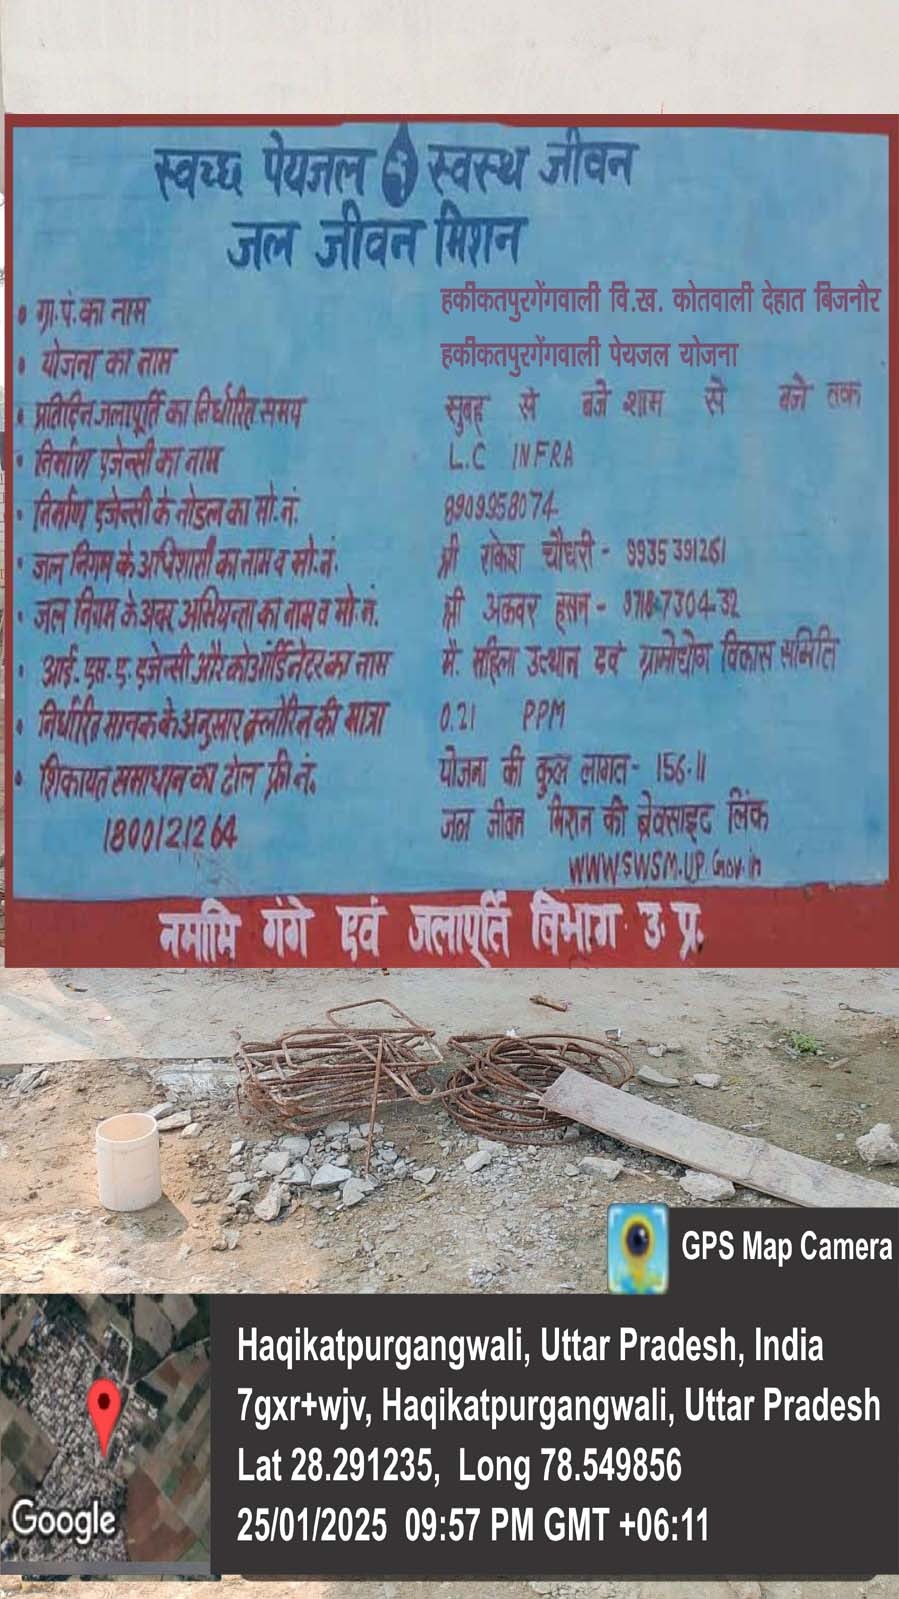 स्वच्छ पेयजल स्वस्थ जीवन
जल जीवन मिशन
ग्रा.पं.का नाम हकीकतपुरगेंगवाली वि.ख. कोतवाली देहात बिजनौर
योजना का नाम हकीकतपुरगेंगवाली पेयजल योजना
प्रतिदिन जलापूर्ति का निर्धारित समय सुबह से बजे शाम से बजे तक
निर्माण एजेन्सी का नाम L.C INFRA
निर्माण एजेन्सी के नोडल का मो.नं. 8909958074
जल निगम के अधिशासी का नाम व मो.नं. श्री राकेश चौधरी - 9935391261
जल निगम के अवर अभियन्ता का नाम व मो.नं. श्री अकबर हसन - 9718-7304-32
आई.एस.ए. एजेन्सी और कोऑर्डिनेटर का नाम मै. महिला उत्थान एवं ग्रामोद्योग विकास समिति
निर्धारित मानक के अनुसार क्लोरिन की मात्रा 0.21 PPM
शिकायत समाधान का टोल फ्री नं. योजना की कुल लागत - 156.11
180012,1264 जल जीवन मिशन की बेवसाइट लिंक
WWW.SWSM.UP.Gov.in
नमामि गंगे एवं जलापूर्ति विभाग उ.प्र.
GPS Map Camera
Haqikatpurgangwali, Uttar Pradesh, India
7gxr+wjv, Haqikatpurgangwali, Uttar Pradesh
Lat 28.291235, Long 78.549856
25/01/2025 09:57 PM GMT +06:11
Google